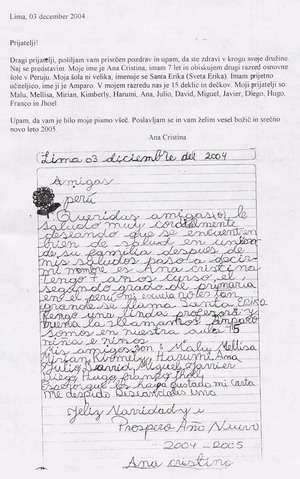 Lima, 03 december 2004
Prijatelji!
Dragi prijatelji, pošiljam vam prisrčen pozdrav in upam, da ste zdravi v krogu svoje družine.
Naj se predstavim. Moje ime je Ana Cristina, imam 7 let in obiskujem drugi razred osnovne
šole v Peruju. Moja šola ni velika, imenuje se Santa Erika (Sveta Erika). Imam prijetno
učiteljico, ime ji je Amparo. V mojem razredu nas je 15 deklic in dečkov. Moji prijatelji so:
Malu, Mellisa, Mirian, Kimberly, Harumi, Ana, Julio, David, Miguel, Javier, Diego, Hugo,
Franco in Jhoel.
Upam, da vam je bilo moje pismo všeč. Poslavljam se in vam želim vesel božič in srečno
novo leto 2005.
Ana Cristina
Lima 03 diciembre del 2004
Amigas
perú
Queridas amigas le
saludo muy cordialmente
deseando que se encuentren
bien de salud en union
de su familia despues de
mis saludos paso a decir
mi nombre es Ana cristina
tengo 7 años curso el
segundo grado de primaria
en el perú mi escuela no es tan
grande se llama Santa Erika
tengo una linda profesora y
buena la llamamos Amparo
somos en nuestra aula 15
niña e niños
Mis amigos son Malu Mellisa
Mirian Kimberly, Harumi, Ana
Julio David, Miguel Javier
Diego Hugo franco Jhoel
espero que les haiga gustado mi carta
me despido
Feliz Navidad y
Prospero Año Nuevo
2004-2005
Ana cristina